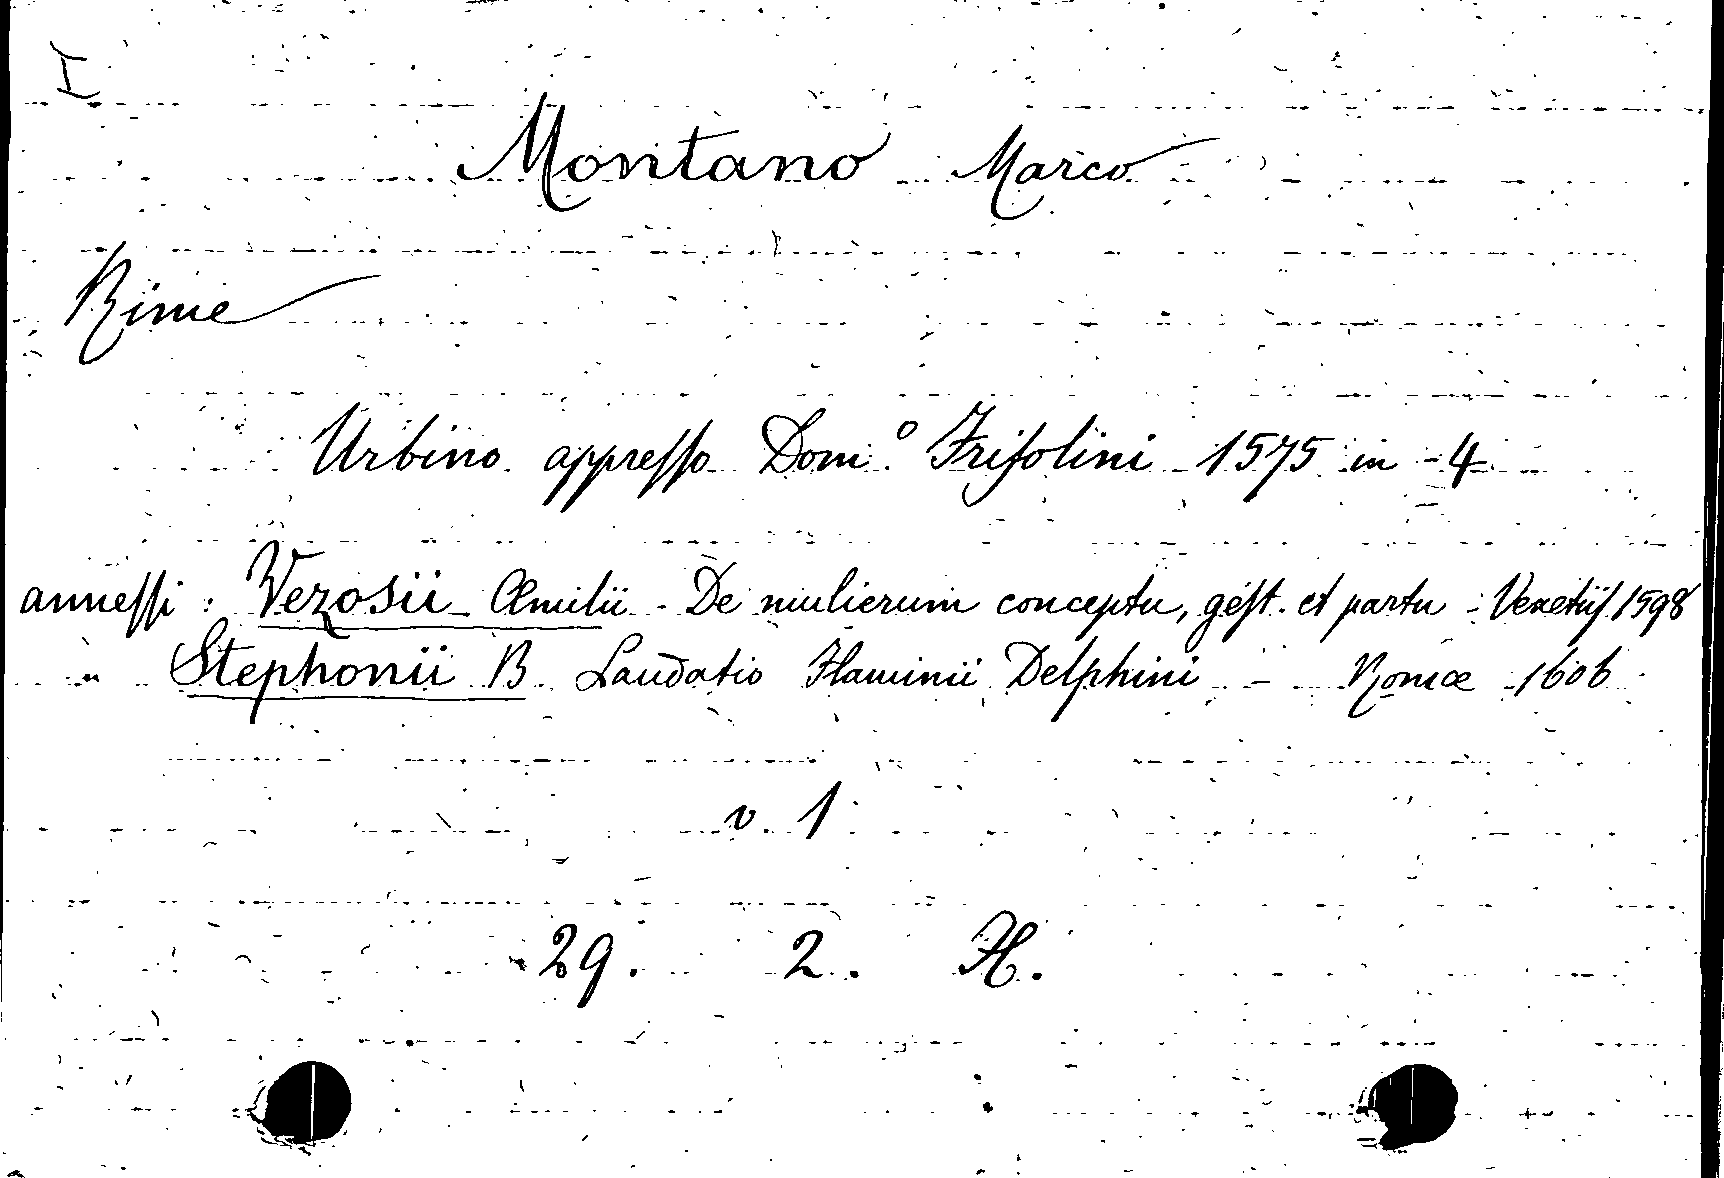 I
Montano Marco
Rime
Urbino appresso Dom.º Frisolini 1575 in 4
annessi : Vezosii Æmilii - De mulierum conceptu, gest. et partu - Venetiis 1598
" Stephonii B Laudatio Flaminii Delphini - Romæ 1606
v. 1
29. 2. H.